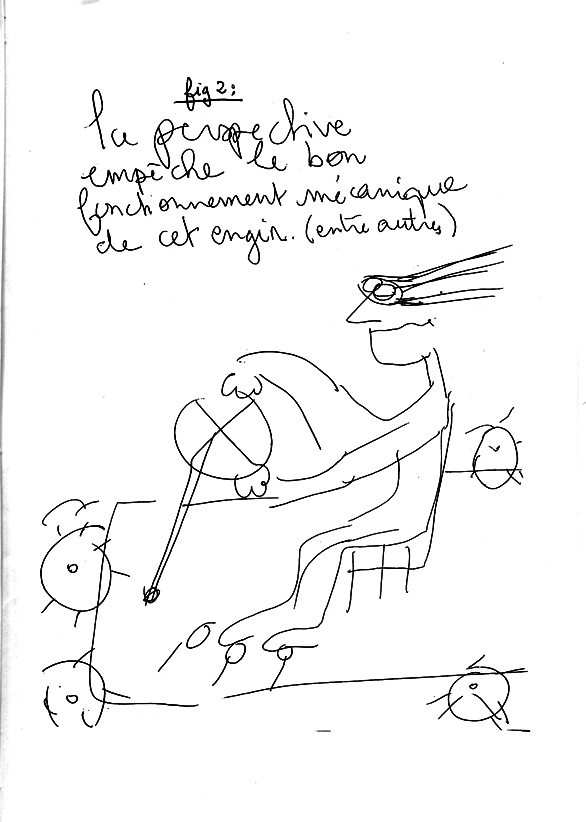 fig 2:
la perspective
empêche le bon
fonctionnement mécanique
de cet engin. (entre autres)